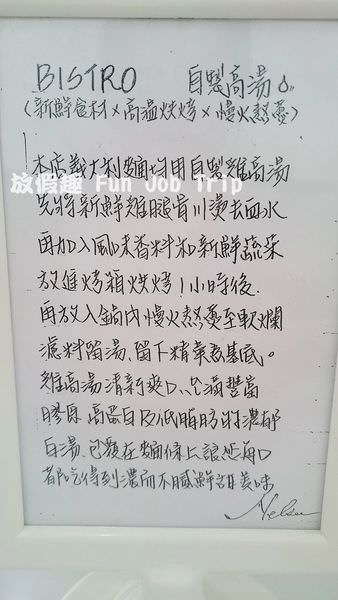 BISTRO 自製高湯
(新鮮食材×高溫烘烤×慢火熬煮)
本店義大利麵均用自製雞高湯
放假趣 Fun Job Trip
先將新鮮雞腿骨川燙去血水
再加入風味香料和新鮮蔬菜
放進烤箱烘烤1小時後.
再放入鍋內慢火熬煮至軟爛
濾料留湯、留下精華為基底。
雞高湯清新爽口、充滿豐富
膠原 高蛋白及低脂肪的濃郁
白湯、包覆在麵條上讓您每口
都吃得到濃而不膩鮮甜美味
Nelson